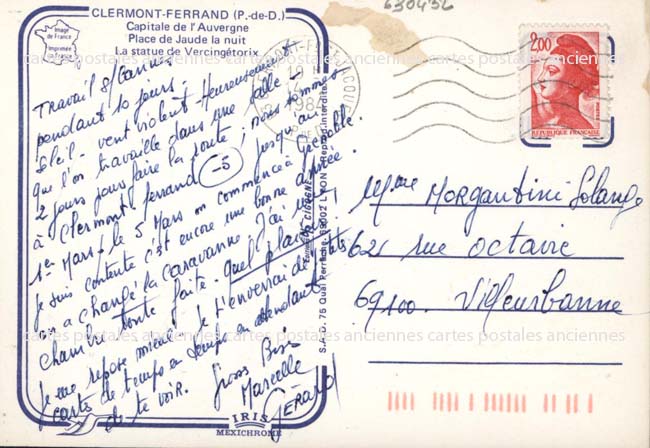 630432
CLERMONT-FERRAND (P.-de-D.)
Capitale de l'Auvergne
Place de Jaude la nuit
La statue de Vercingétorix
Image de France
Imprimée en France
Travail s/Cannes
pendant 10 jours:
Soleil - vent violent. Heureusement
que l'on travaille dans une salle -
2 jours pour faire la route; nous sommes
à Clermont ferrand (-5) jusqu'au
1er Mars. le 5 Mars on commence à Grenoble.
je suis contente c'est encore une bonne année.
On a changé la caravanne. J'ai une
chambre toute faite. quel plaisir!
je me repose mieux. je t'enverrai des
cartes de temps en temps en attendant
de te voir. Gross Bises
Marcelle
GÉRARD
1984
S.A. 76 Quai Perrache, 69002 LYON Reprod. interdite
2,00
POSTES
REPUBLIQUE FRANCAISE
Mme Morgantini Solange
621 rue octavie
69100. Villeurbanne
cartes postales anciennes cartes postales anciennes cartes postales anciennes
IRIS
MEXICHROME